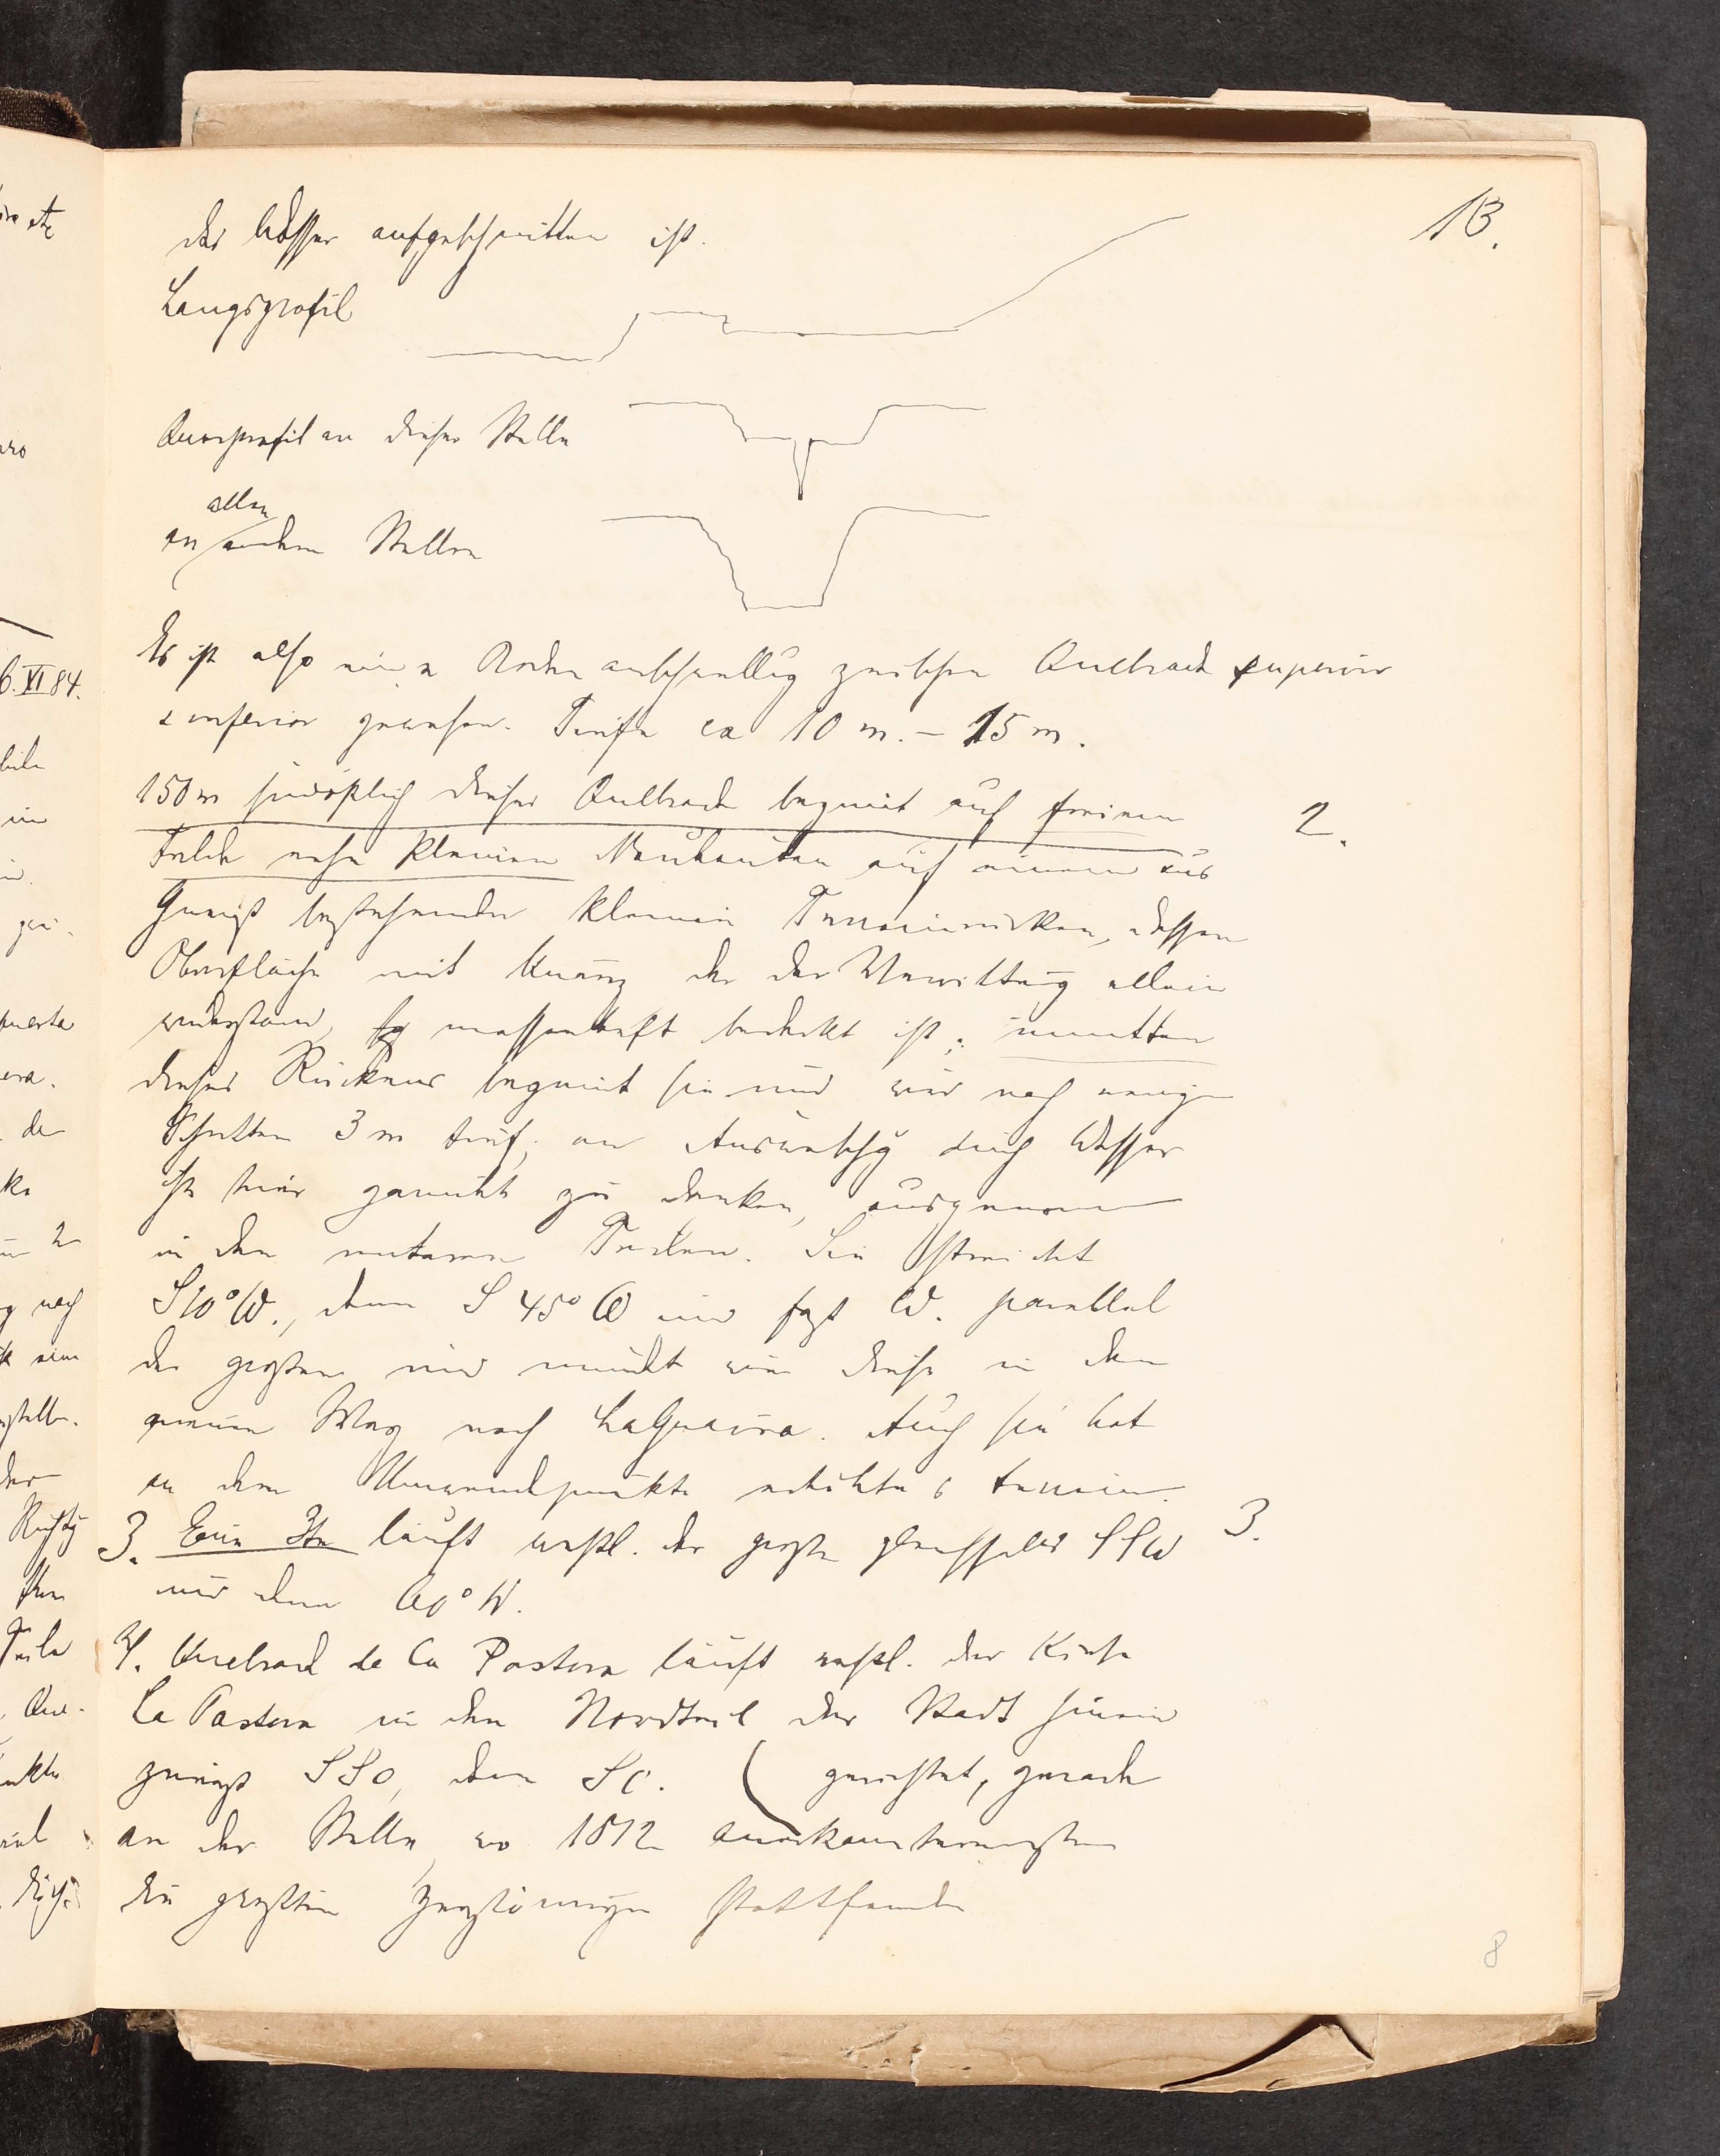 13.
das Wasser aufgeschnitten ist.
Langsprofil
Querprofil an dieser Stelle
allen
an andern Stellen
Es ist also eine Bodenanschwellūg zwischen Quebrada superior
& inferior gewesen. Tiefe ca 10 m. – 15 m.
150 m südöstlich dieser Quebrada beginnt auf freiem
2.
Felde nahe kleinen Neubauten auf einem aus
Gneiß bestehenden kleinen Terrainrücken, dessen
Oberfläche mit Quarz der der Verwitterūg allein
widerstand, massenhaft bedeckt ist; inmitten
dieses Rückens beginnt sie und wird nach wenigen
Schritten 3 m tief; an Auswaschg durch Wasser
ist hier garnicht zu denken, ausgenommen
in den unteren Teilen. Sie streicht
S10°W., dann S 45° W und fast W. parallel
der großen und mündet wie diese in den
neuen Weg nach LaGuaira. Auch sie hat
an dem Umwendpunkte erhöhtes terrain.
3. Eine 3te läuft westl. der großen gleichfalls SSW
3.
und dann W.
4. Quebrad de la Pastora läuft westl. der Kirche
La Pastora in den Nordteil der Stadt hinein
zuerst SSO, dann SO. ( gerichtet, gerade
an der Stelle, wo 1812
die größten Zerstörungen stattfanden
8
6. VI 84.